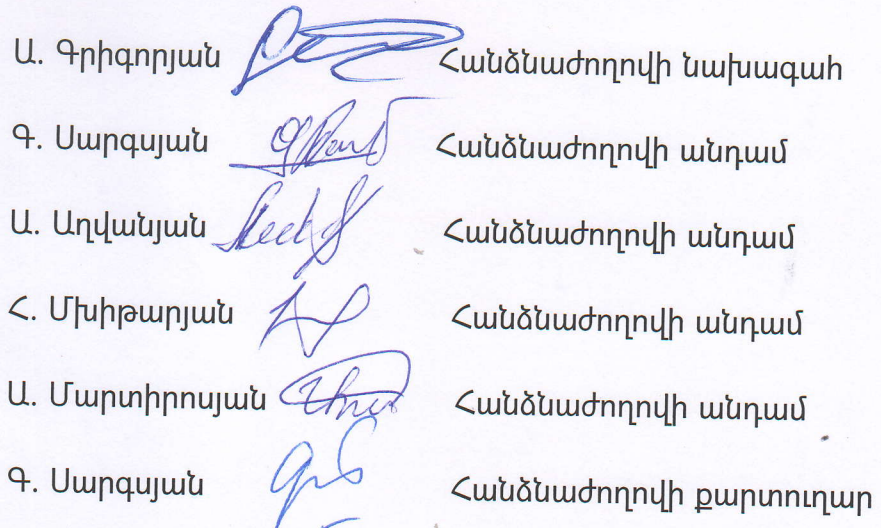 Ա. Գրիգորյան Հանձնաժողովի նախագահ
Գ. Սարգսյան Հանձնաժողովի անդամ
Ա. Աղվանյան Հանձնաժողովի անդամ
Հ. Մխիթարյան Հանձնաժողովի անդամ
Ա. Մարտիրոսյան Հանձնաժողովի անդամ
Գ. Սարգսյան Հանձնաժողովի քարտուղար